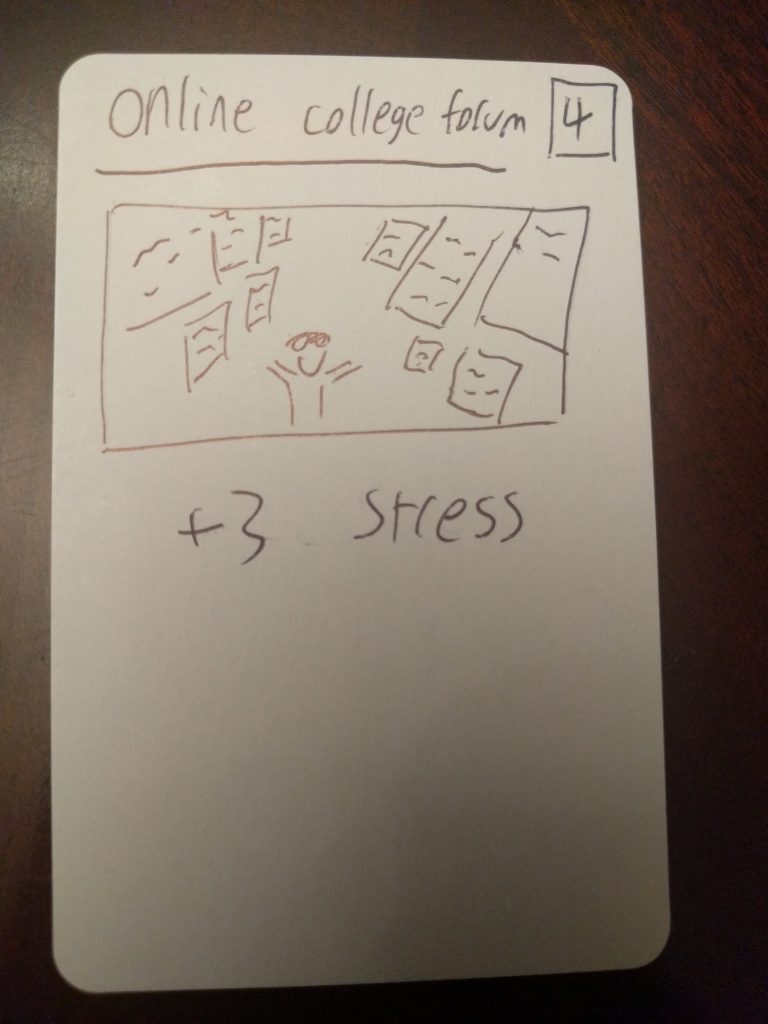 Online college forum 4
+3 stress